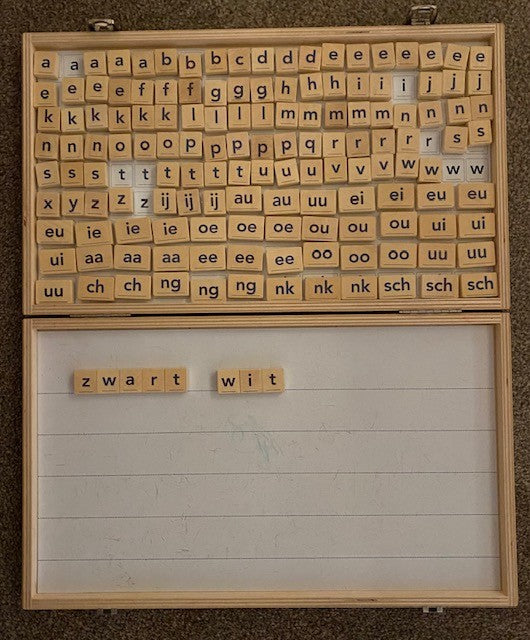 a a a a a b b b c d d d e e e e e e e
e e e e f f f g g g h h h i i i j j j
k k k k k k l l l l m m m m m n n n n
n n n o o o p p p p p q r r r r r s s
s s s t t t t t t u u u v v v w w w w
x y z z z ij ij ij au au uu ei ei eu eu
eu ie ie ie oe oe oe ou ou ou ui ui
ui aa aa aa ee ee ee oo oo oo uu uu
uu ch ch ng ng ng nk nk nk sch sch sch
zwart wit